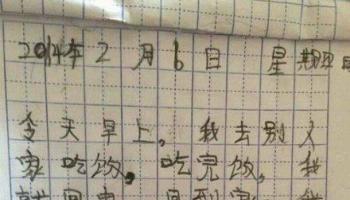 2014年2月6日 星期四
今天早上,我去别人
家吃饭,吃完饭,我
就回家,回到家,我